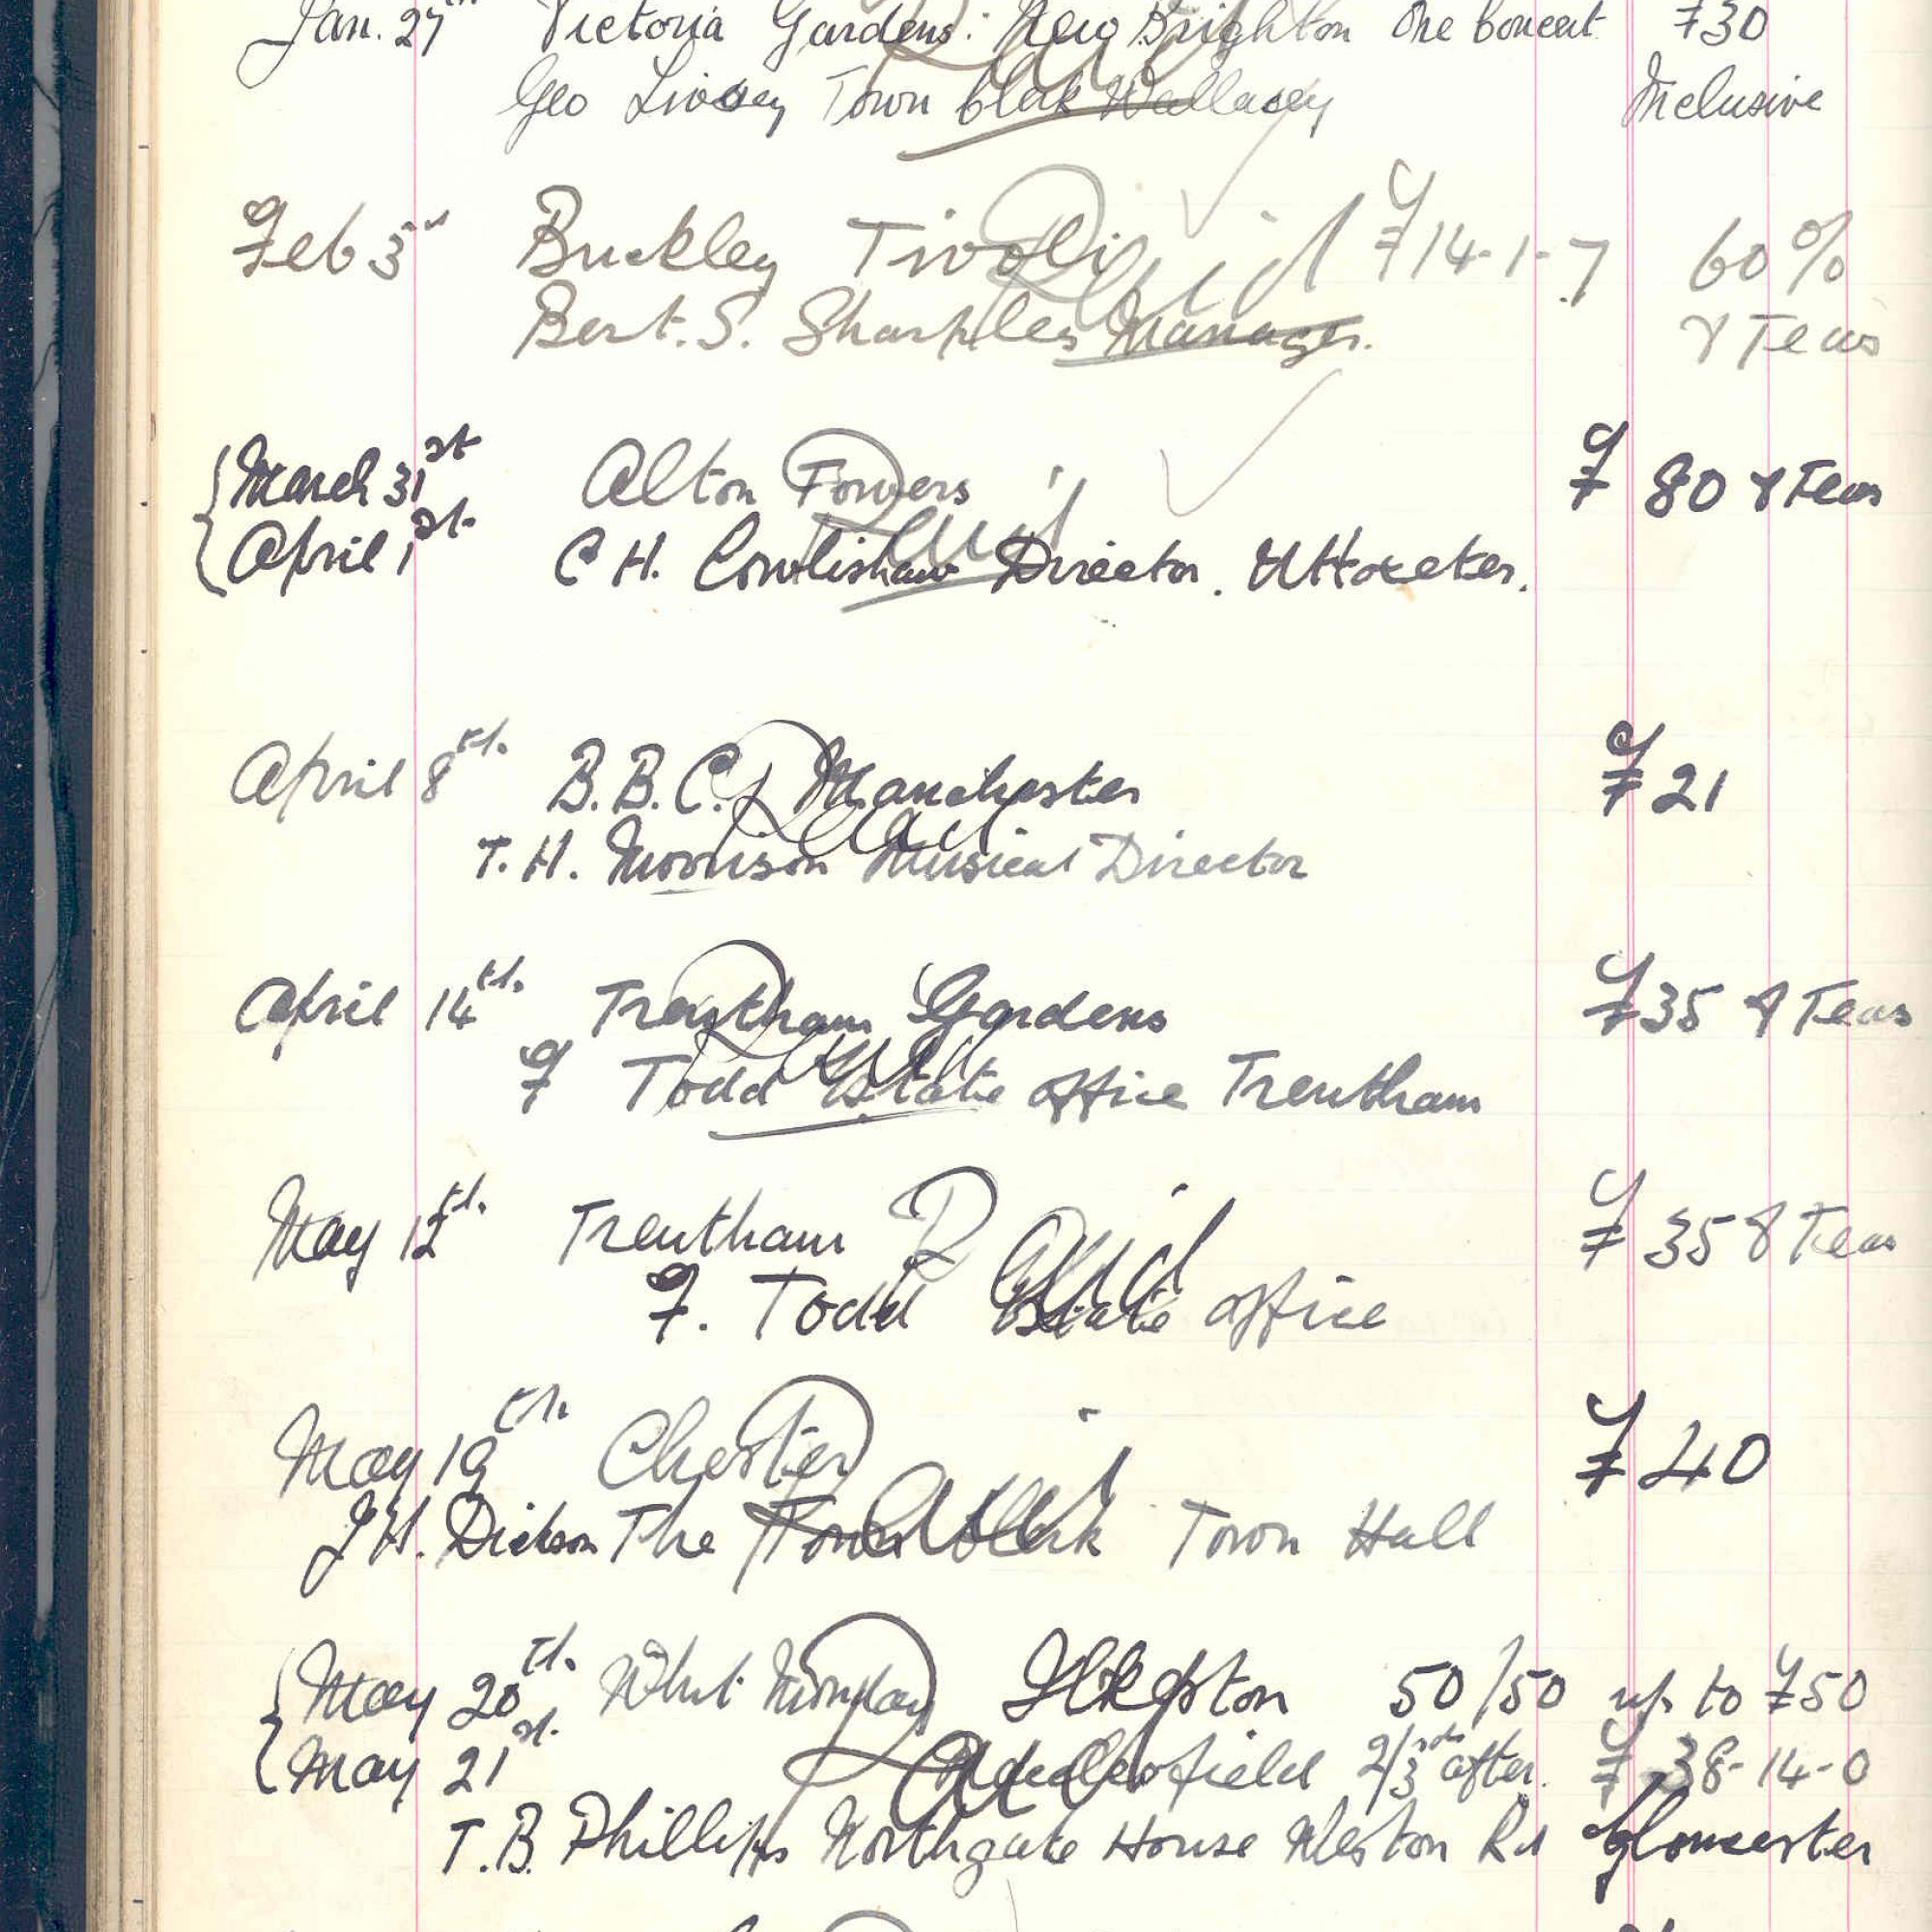 Jan. 27th Victoria Gardens. New Brighton One Concert £30
Geo Livsey Town Clerk Wallasey Inclusive
Feb 3rd Buckley Tivoli £14-1-7 60%
Bert. S. Sharples Manager. & Teas
Paid
March 31st Alton Towers £ 80 & Teas
April 1st. C H. Cowlishaw Director. Uttoxeter.
Paid
April 8th. B.B.C. Manchester £21
T. H. Morrison Musical Director
Paid
April 14th. Trentham Gardens £35 & Teas
F Todd Estate office Trentham
Paid
May 12th. Trentham £ 35 & Teas
F. Todd Estate office
Paid
May 19th. Chester £40
J.H. Dickson The Town Clerk Town Hall
Paid
May 20th. Whit Monday Ilkeston 50/50 up to £50
May 21st. 2/3rds after. £ 38-14-0
T.B. Phillips Northgate House Weston Rd Gloucester
Paid